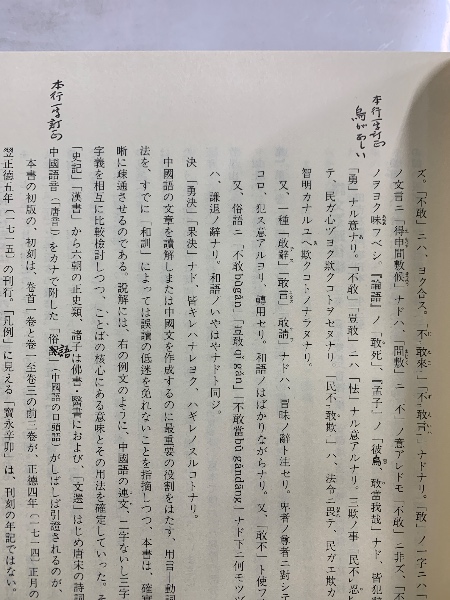 ズ。「不敢」ニハ、ヨク合ス。「不敢來」「不敢言」ナドナリ。「敢」ノ一字ニハ「
ノ文言ニ「得申間敷候」ナドハ、「間敷」ニ「不」ノ意アレドモ「不敢」ニ非ズ、「不
本行一字訂正
ノヲヨク味フベシ。『論語』ノ「敢死」、『孟子』ノ「彼鳥敢當我哉」ナド、皆犯
「勇」ナル意ナリ。「不敢」「豈敢」ニハ「怯」ナル意アルナリ。三欺ノ事、民不忍
テ、民ガ心ヅヨク欺クコトヲセヌナリ。「民不敢欺」ハ、法令ニ畏テ、民ガエ欺カ
智明カナルユヘ欺クコトノナラヌナリ。
又、一種「敢辭」「敢言」「敢請」ナドハ、冒昧ノ辭ト注セリ。卑者ノ尊者ニ對シテ
コロ、犯ス意アルヨリ、轉用セリ。和語ノはばかりながらナリ。又、「敢不」ト使フ
又、俗語ニ「不敢bùgǎn」「豈敢qǐ gǎn」「不敢當bù gǎndāng」ナド下ニ何モツヅ
ハ、謙退ノ辭ナリ。和語ノいやはやナドト同ジ。
決 「勇決」「果決」ナド、皆キレハナレヨク、ハギレノスルコトナリ。
中國語の文章を讀解しまたは中國文を作成するのに最重要の役割をはたす、用言—動詞
法を、すでに「和訓」によっては誤讀の低迷を免れないことを指摘しつつ、本書は、確實
晰に疎通させるのである。説解には、右の例文のように、中國語の連文、二字ないし三字
字義を相互に比較檢討しつつ、ことばの核心にある意味とその用法を確定していった。そ
「史記」「漢書」から六朝の正史類、諸子は佛書・醫書におよび、「文選」はじめ唐宋の詩詞
本行一字訂正
中國語音(「唐音」)をカナで附した「俗語」(中國語の口頭語)がしばしば引證されるのが、
本書の初版の、初刻は、卷首一卷と卷一至卷三の前三卷が、正德四年(一七一四)正月の
翌正德五年(一七一五)の刊行。「凡例」に見える「寶永辛卯」は、刊刻の年記ではない。